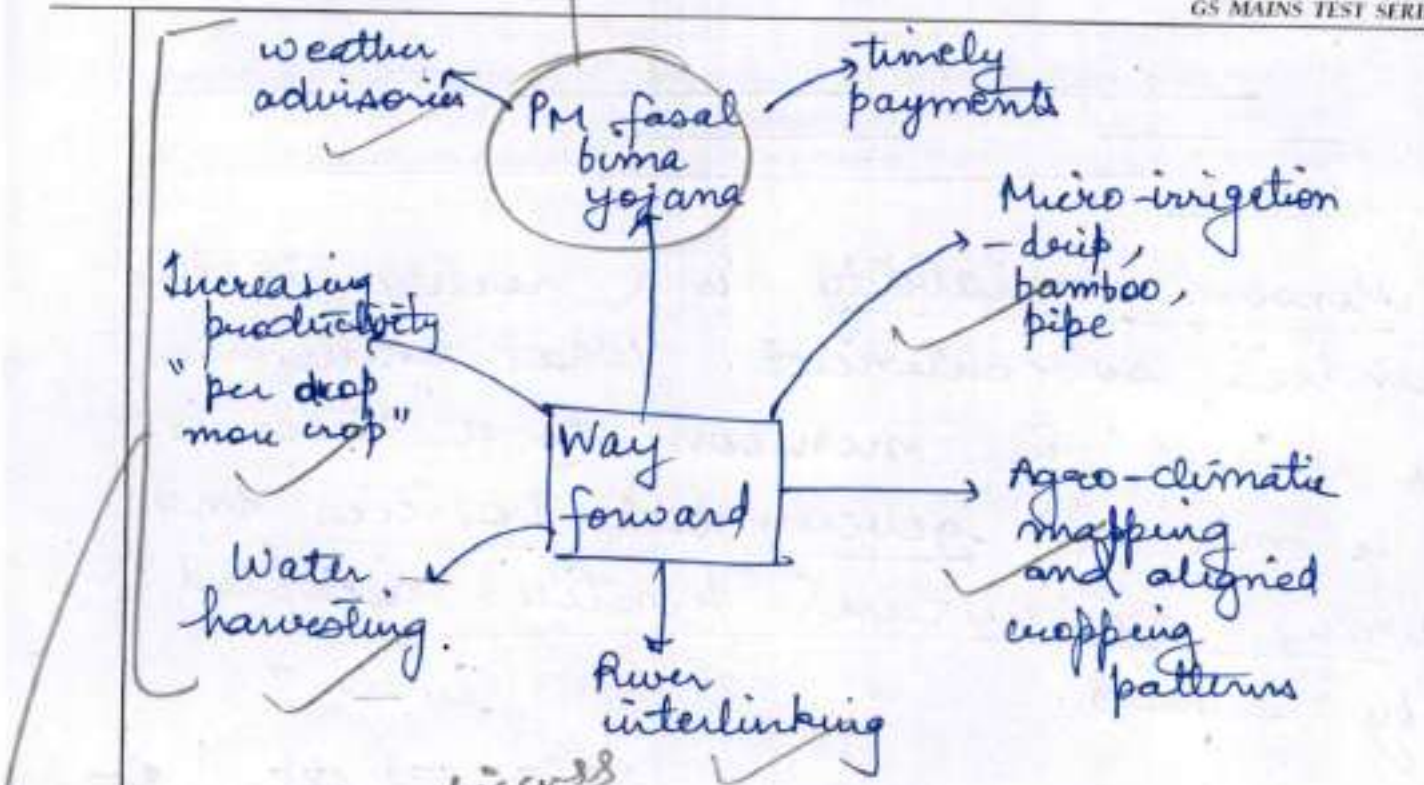 GS MAINS TEST SERI
weather
advisories
PM fasal
bima
yojana
timely
payments
Micro-irrigation
- drip,
bamboo,
pipe
Increasing
productivity
"per drop
more crop"
Way
forward
Agro-climatic
mapping
and aligned
cropping
patterns
Water
harvesting.
River
interlinking
discuss